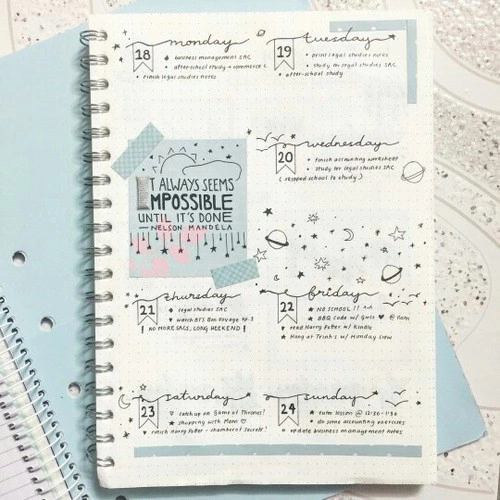 18 monday
business management SAC
after-school study + commerce
finish legal studies notes
19 tuesday
print legal studies SAC
study for legal studies SAC
after-school study
IT ALWAYS SEEMS
IMPOSSIBLE
UNTIL IT'S DONE
— NELSON MANDELA
20 wednesday
finish accounting worksheet
study for legal studies SAC
(skipped school to study)
21 thursday
legal studies SAC
watch BTS Bon Voyage ep.3
! NO MORE SACS, LONG WEEKEND!
22 friday
NO SCHOOL !! ^^
BBQ w/ Girls ♥ @ 11am
read Harry Potter w/ Kindle
Hang at Trinh's w/ Monday Crew
23 saturday
catch up on Game of Thrones!
shopping with Mom ♡
finish Harry Potter - chamber of secrets!
24 sunday
tutor lesson @ 12:30-1:30
do some accounting exercises
update business management notes